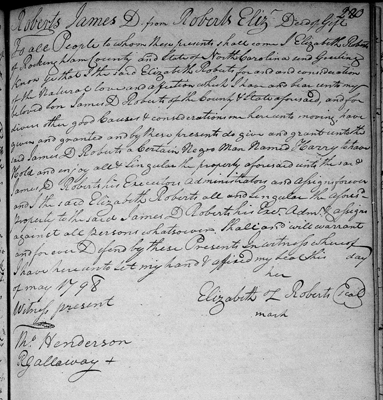 Roberts James D. from Roberts Eliz. Deed of Gift 280
To all People to whom these presents shall come I Elizabeth Roberts
of Rockingham County and State of North Carolina and Greeting
Know ye that I the said Elizabeth Roberts for and and consideration
of the Natural love and affection which I have and bear unto my
beloved son James D. Roberts of the County & State aforesaid, and for
divers other good Causes & considerations me hereunto moving have
given and granted and by these presents do give and grant unto the
said James D. Roberts a Certain Negro Man Named Harry to have
Hold and enjoy all & Singular the property aforesaid unto the said
James D. Roberts his Executors Administrators and Assigns forever
and I the said Elizabeth Roberts all and Singular the afores.d
Property to the said James D. Roberts his Exec. Adm.rs & assigns
against all persons whatsoever Shall and will warrant
and for ever Defend by these Presents In witness whereof
I have hereunto Set my hand & affixed my Seal this day
of may 1798
her
Elizabeth Z Roberts Seal
mark
Witness present
Tho.s Henderson
R Gallaway +